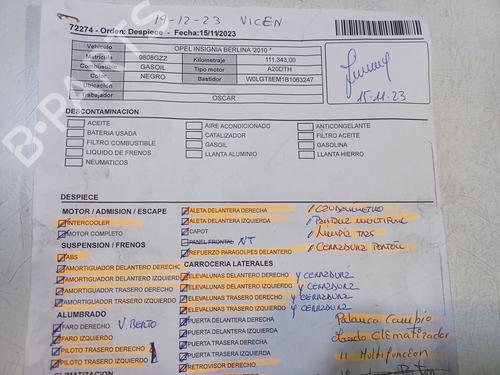 19-12-23 VICEN
72274 - Orden: Despiece - Fecha:15/11/2023
Vehículo OPEL INSIGNIA BERLINA '2010 *
Matrícula 9808GZZ Kilometraje 111.343,00
Combustible GASOIL Tipo motor A20DTH
Color NEGRO Bastidor W0LGT8EM1B1063247
Ubicación
Trabajador OSCAR
15-11-23
DESCONTAMINACION
ACEITE AIRE ACONDICIONADO ANTICONGELANTE
BATERIA USADA CATALIZADOR FILTRO ACEITE
FILTRO COMBUSTIBLE GASOIL GASOLINA
LIQUIDO DE FRENOS LLANTA ALUMINIO LLANTA HIERRO
NEUMATICOS
DESPIECE
MOTOR / ADMISION / ESCAPE
INTERCOOLER
MOTOR COMPLETO
SUSPENSION / FRENOS
ABS
AMORTIGUADOR DELANTERO DERECHO
AMORTIGUADOR DELANTERO IZQUIERDO
AMORTIGUADOR TRASERO DERECHO
AMORTIGUADOR TRASERO IZQUIERDO
ALUMBRADO
FARO DERECHO V. BERTO
FARO IZQUIERDO
PILOTO TRASERO DERECHO
PILOTO TRASERO IZQUIERDO
CLIMATIZACION
ALETA DELANTERA DERECHA
ALETA DELANTERA IZQUIERDA
CAPOT
PANEL FRONTAL NT
REFUERZO PARAGOLPES DELANTERO
CARROCERIA LATERALES
ELEVALUNAS DELANTERO DERECHO Y CERRADURA
ELEVALUNAS DELANTERO IZQUIERDO Y CERRADURA
ELEVALUNAS TRASERO DERECHO Y CERRADURA
ELEVALUNAS TRASERO IZQUIERDO Y CERRADURA
PUERTA DELANTERA DERECHA
PUERTA DELANTERA IZQUIERDA
PUERTA TRASERA DERECHA
PUERTA TRASERA IZQUIERDA
RETROVISOR DERECHO
CAUDALIMETRO
Palanca Cambio
Mando Climatizador
11 Multifuncion
B-PARTS